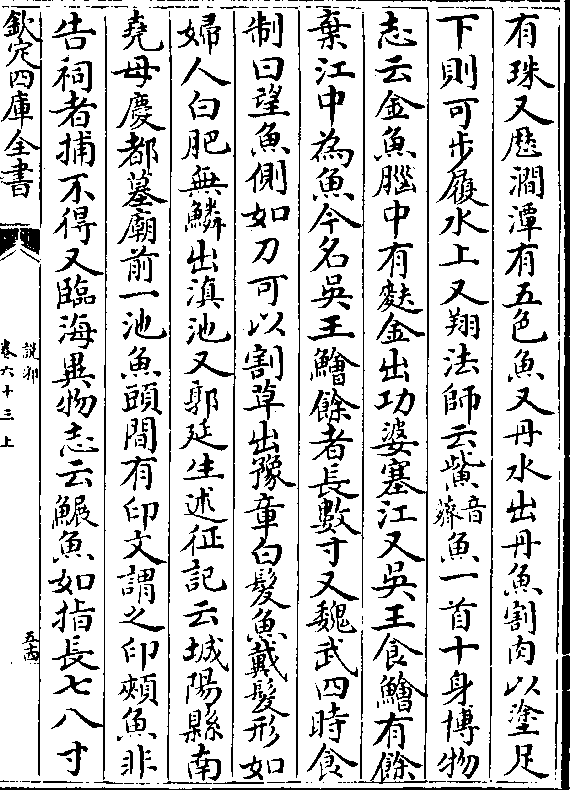 有珠又厯澗潭有五色魚又丹水出丹魚割肉以塗足
下則可步履水上又翔法師云鮆音薺魚一首十身博物
志云金魚腦中有麩金出功婆塞江又吳王食鱠有餘
棄江中為魚今名吳王鱠餘者長數寸又魏武四時食
制曰望魚側如刀可以割草出豫章白髮魚戴髮形如
婦人白肥無鱗出滇池又郭延生述征記云城陽縣南
堯母慶都墓廟前一池魚頭間有印文謂之印頰魚非
告祠者捕不得又臨海異物志云鯷魚如指長七八寸
欽定四庫全書
說郛
卷六十三上
五十四